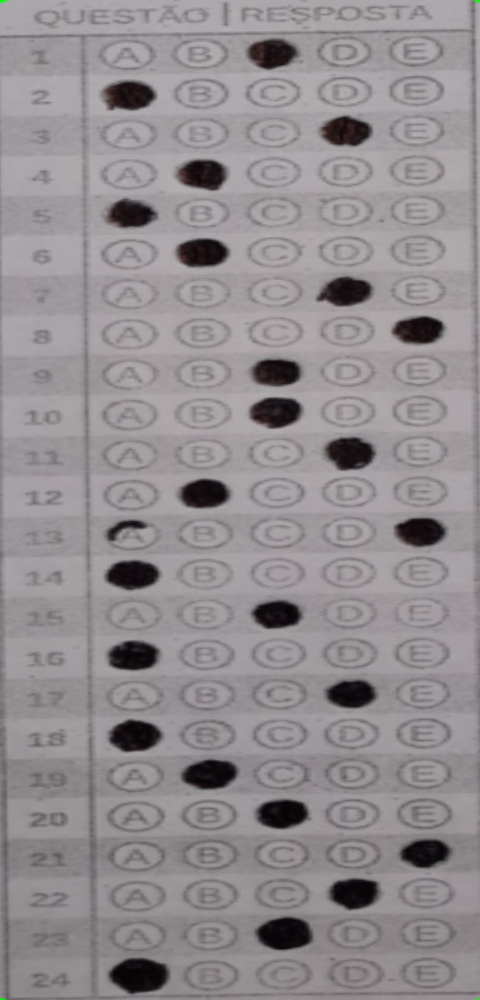 QUESTÃO | RESPOSTA
1 A B D E
2 B C D E
3 A B C E
4 A C D E
5 B C D E
6 A C D E
7 A B C E
8 A B C D
9 A B D E
10 A B D E
11 A B C E
12 A C D E
13 A B C D
14 B C D E
15 A B D E
16 B C D E
17 A B C E
18 B C D E
19 A C D E
20 A B D E
21 A B C D
22 A B C E
23 A B D E
24 B C D E